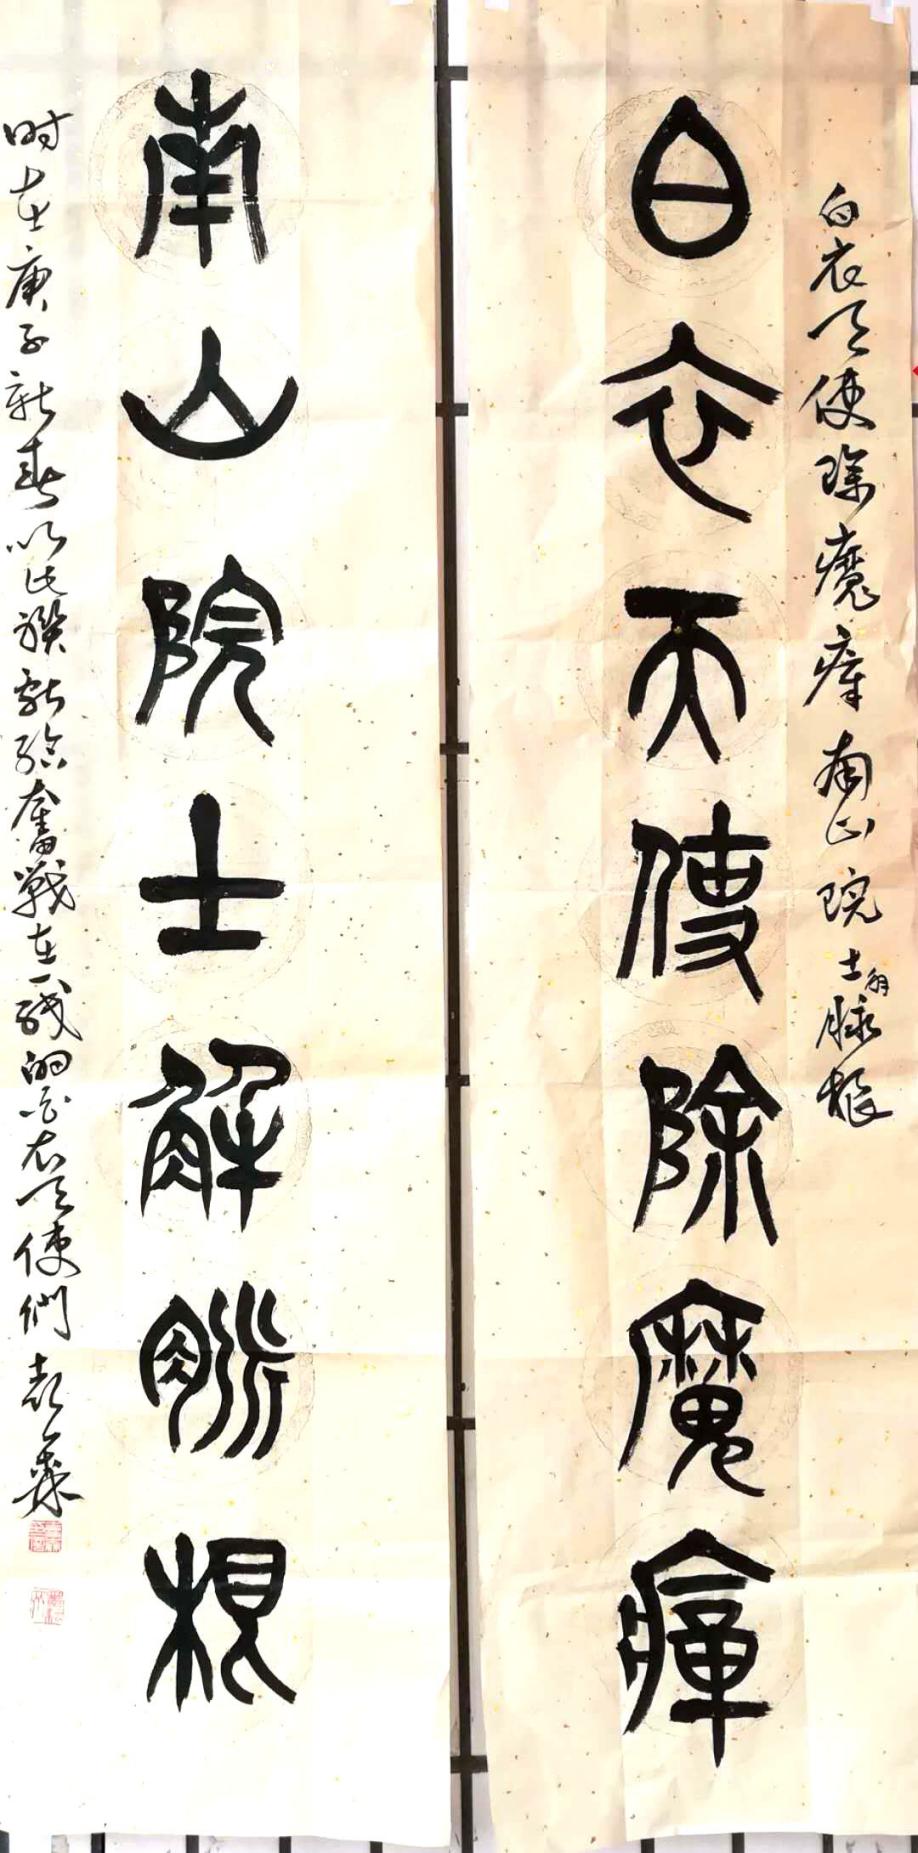 白衣天使除魔瘴南山院士解脉根
白衣天使除魔瘴
南山院士解脈根
时在庚子新春以此聯献给奮戰在一线的白衣天使們